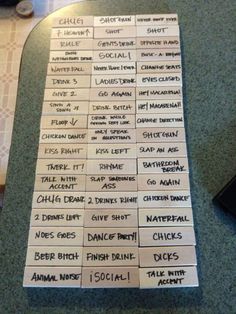 CHUG SHOTGUN NEVER HAVE EVER
↑ HEAVEN ↑ SHOT SHOT
RULE GENTS DRINK OPPOSITE HAND
DRINK SOCIAL!
WATERFALL CHANGE SEATS
DRINK 3 LADIES DRINK EYES CLOSED
GIVE 2 GO AGAIN HEY! MACARENA!
SING A SONG ♫ DRINK BITCH HEY! MACARENA!
FLOOR ↓ DRINK WHILE CHANGE DIRECTION
CHICKEN DANCE ONLY SPEAK IN QUESTIONS SHOTGUN
KISS RIGHT KISS LEFT SLAP AN ASS
TWERK IT! RHYME BATHROOM BREAK
TALK WITH ACCENT SLAP SOMEONES ASS GO AGAIN
CHUG DRINK 2 DRINKS RIGHT CHICKEN DANCE
2 DRINKS LEFT GIVE SHOT WATERFALL
NOES GOES DANCE PARTY!! CHICKS
BEER BITCH FINISH DRINK DICKS
ANIMAL NOISE ¡SOCIAL! TALK WITH ACCENT